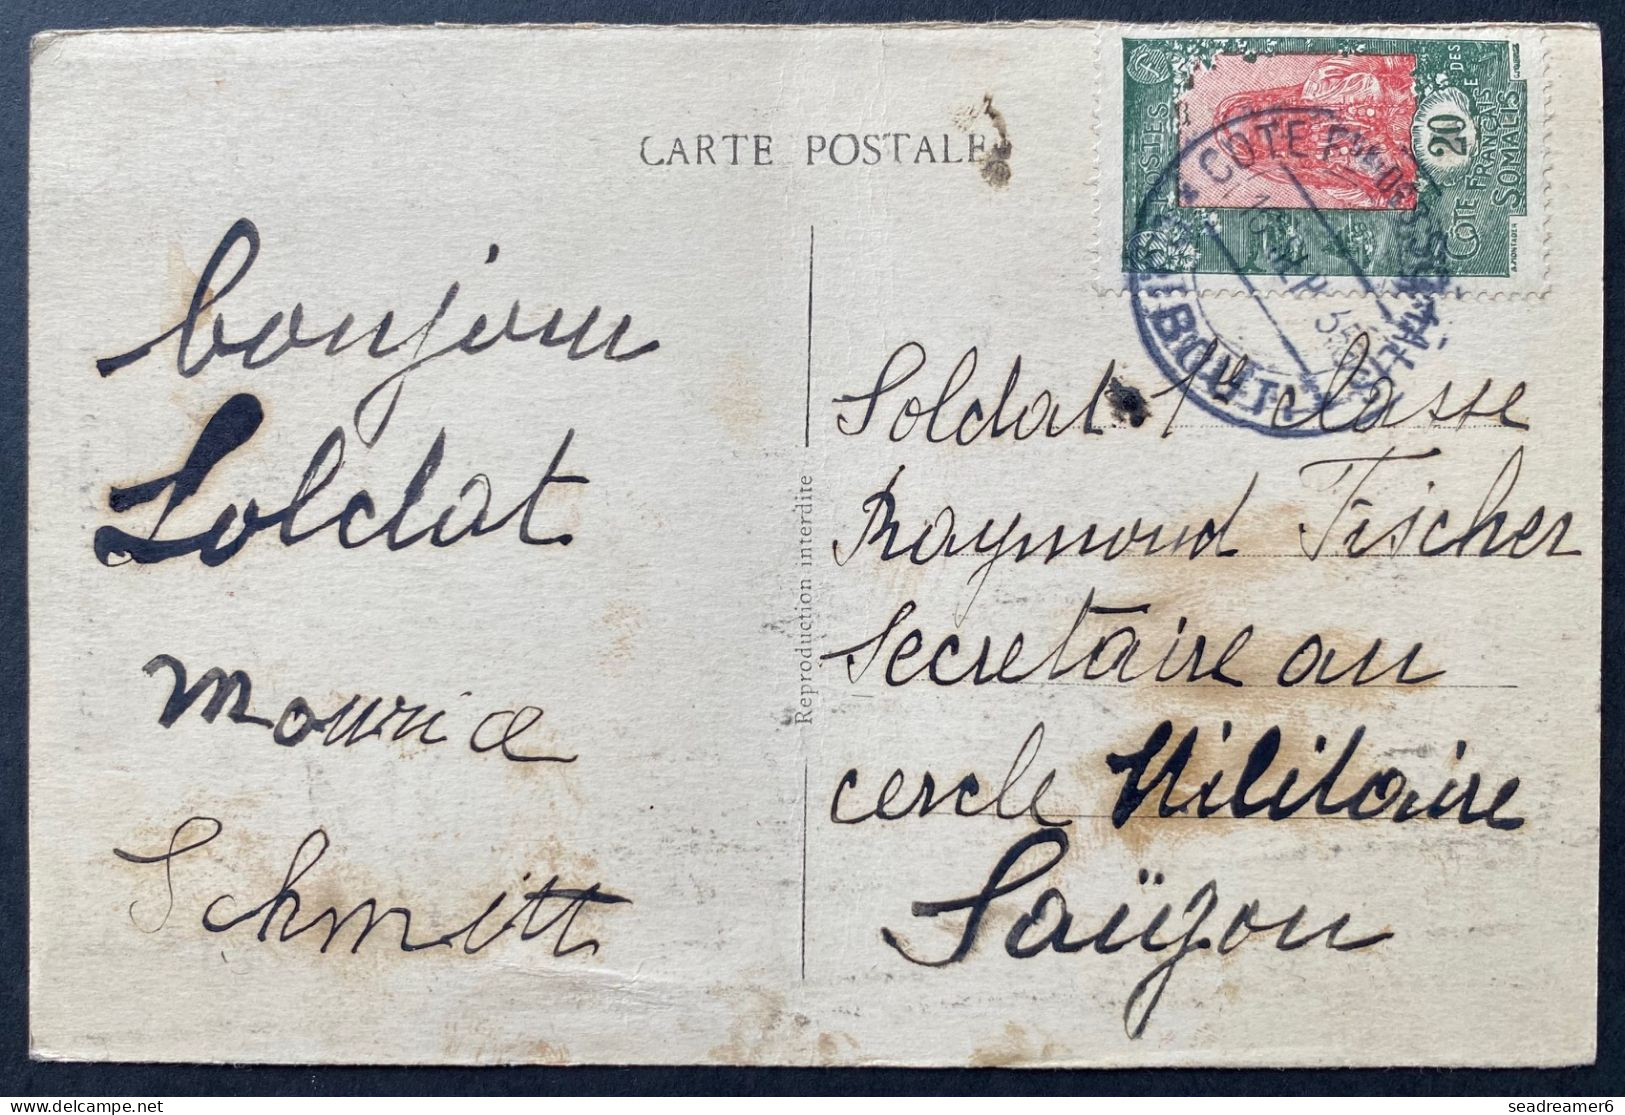 CARTE POSTALE
POSTES
20
CÔTE FRANÇAISE DES
SOMALIS
COTE FSE DES SOMALIS
DJIBOUTI
bonjour
Soldat
Maurice
Schmitt
Reproduction interdite
Soldat 1e classe
Raymond Fischer
Secretaire au
cercle Militaire
Saïgon
seadreamer6